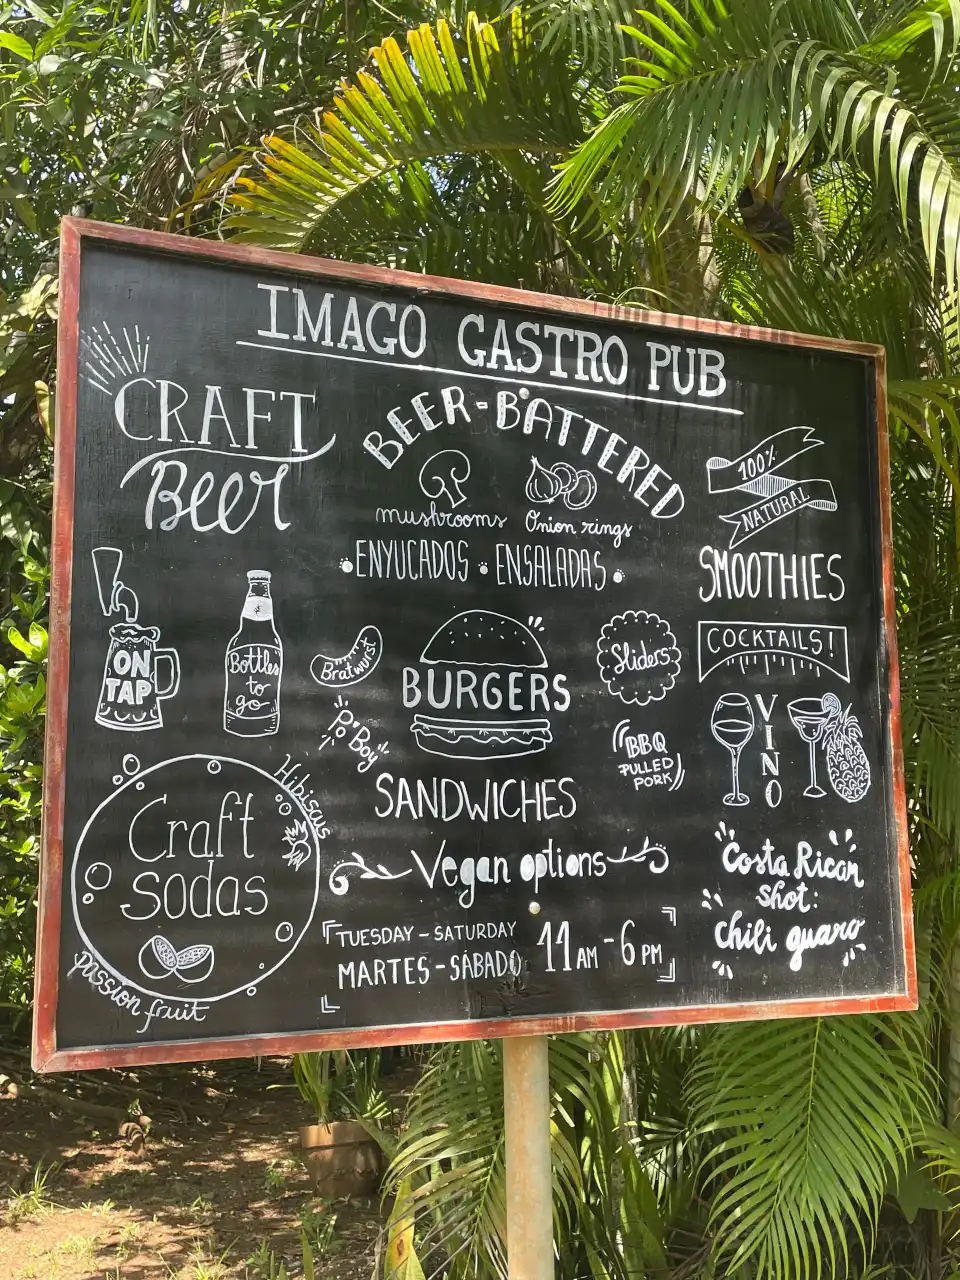 IMAGO GASTRO PUB
CRAFT
Beer
BEER-BATTERED
mushrooms
Onion rings
• ENYUCADOS • ENSALADAS •
100%
NATURAL
SMOOTHIES
COCKTAILS!
ON
TAP
Bottles
to
go
Bratwurst
Po'Boy
BURGERS
Sliders
BBQ
PULLED
PORK
SANDWICHES
VINO
Craft
sodas
Hibiscus
passion fruit
Vegan options
TUESDAY – SATURDAY
MARTES – SÁBADO
11 AM - 6 PM
Costa Rican
shot:
chili guaro